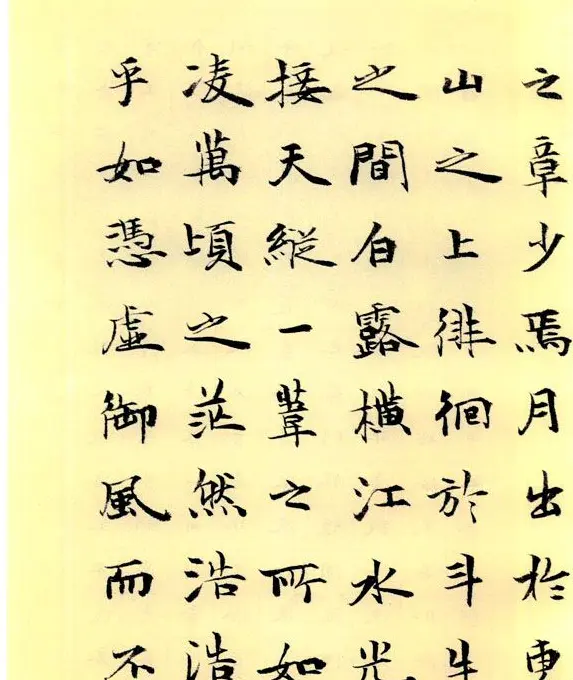 之章少焉月出於東
山之上徘徊於斗牛
之間白露橫江水光
接天縱一葦之所如
凌萬頃之茫然浩浩
乎如憑虛御風而不